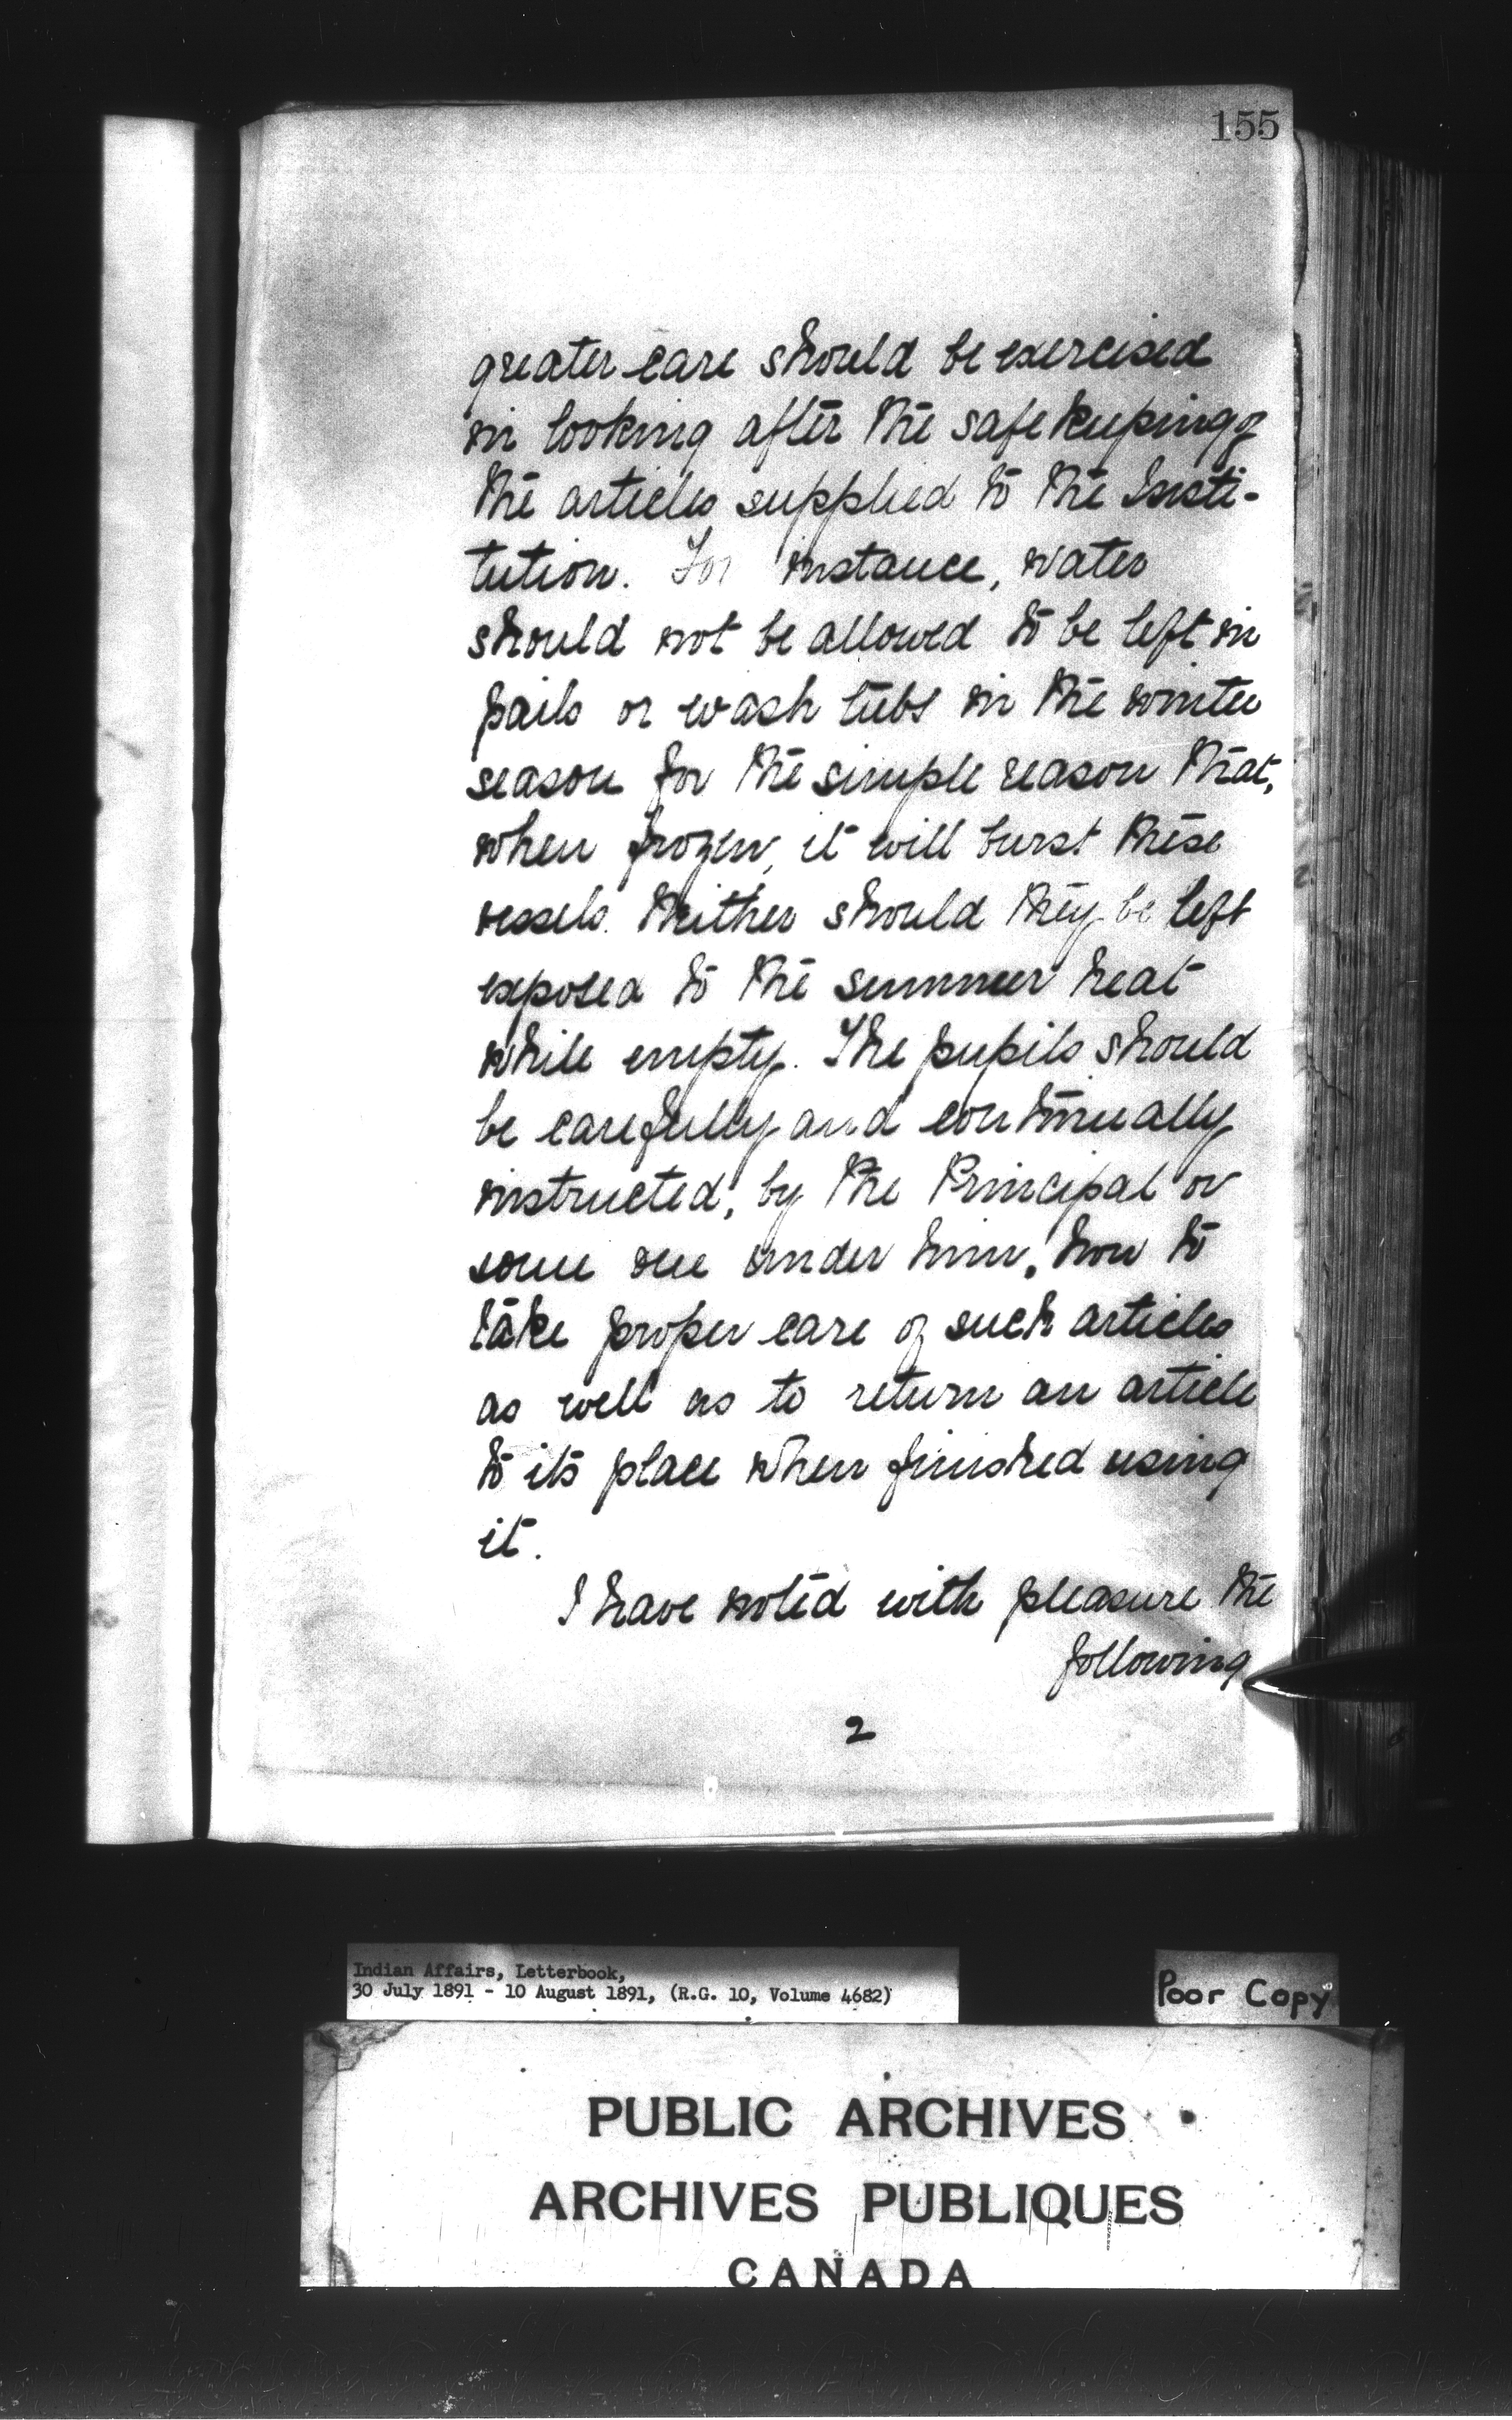 155
greater care should be exercised
in looking after the safe keeping of
the articles supplied to the Insti-
tution. For instance, water
should not be allowed to be left in
pails or wash tubs in the winter
season for the simple reason that,
when frozen, it will burst these
vessels. Neither should they be left
exposed to the summer heat
while empty. The pupils should
be carefully and continually
instructed, by the Principal or
some one under him, how to
take proper care of such articles
as well as to return an article
to its place when finished using
it.
I have noted with pleasure the
following
2
Indian Affairs, Letterbook,
30 July 1891 - 10 August 1891, (R.G. 10, Volume 4682)
Poor Copy
PUBLIC ARCHIVES
ARCHIVES PUBLIQUES
CANADA